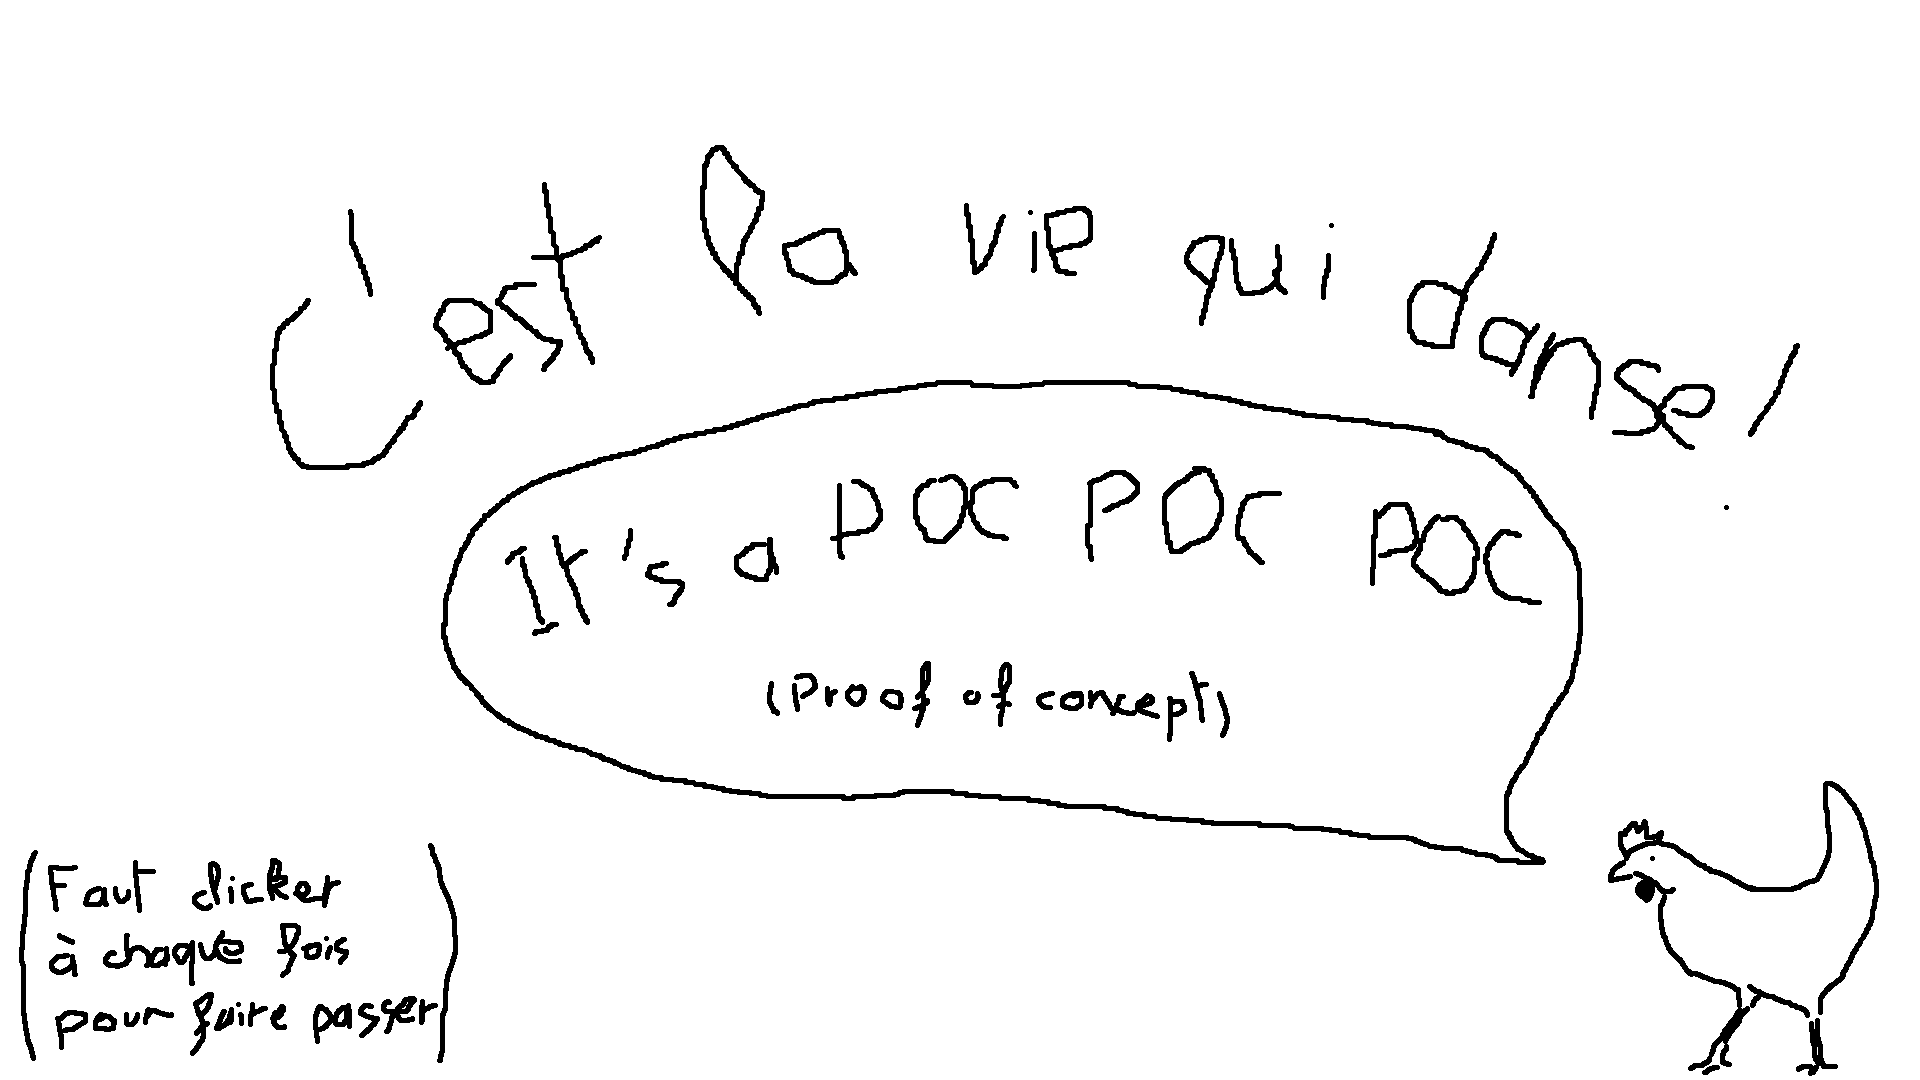 C'est la vie qui danse!
It's a POC POC POC
(Proof of concept)
(Faut clicker
à chaque fois
pour faire passer)